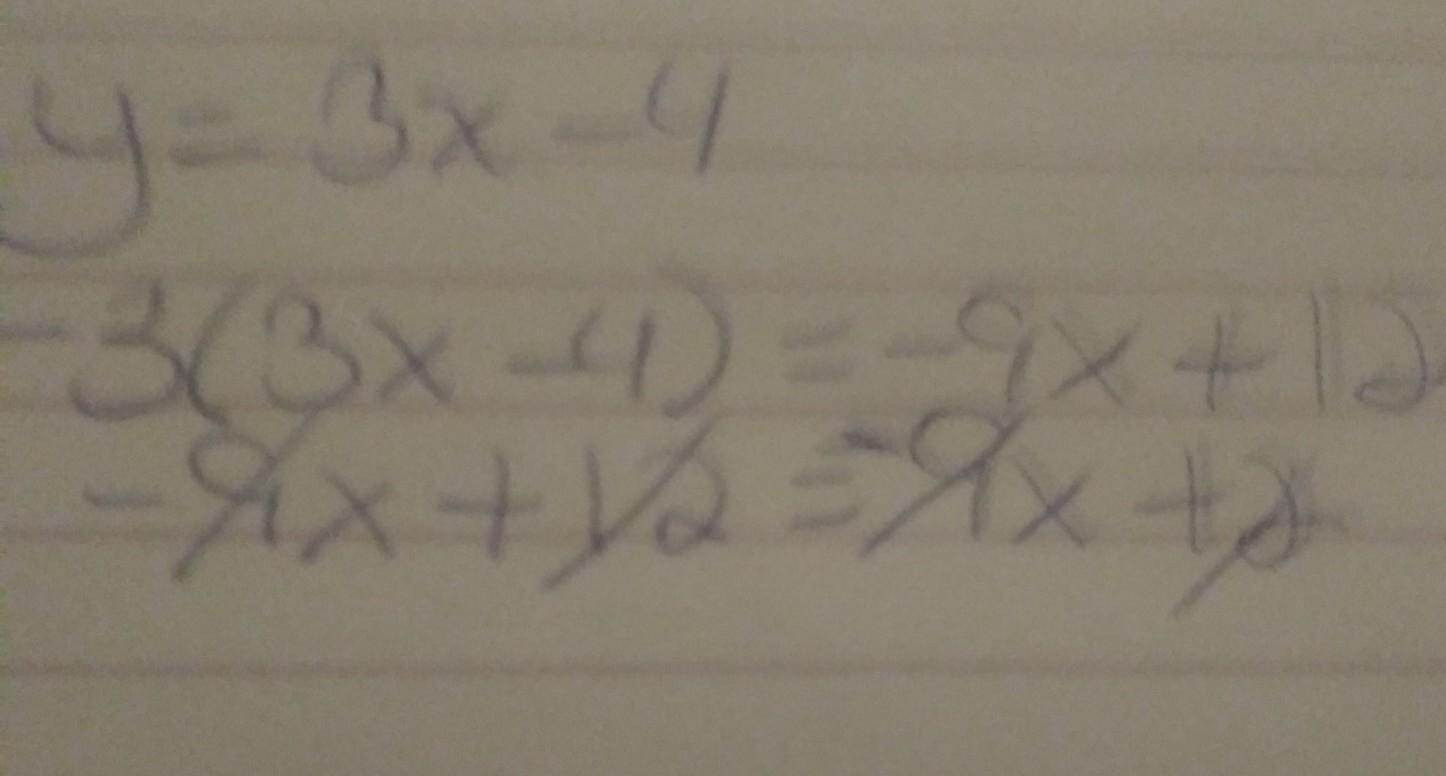 y = 3x - 4
-3(3x - 4) = -9x + 12
-9x + 12 = -9x + 2